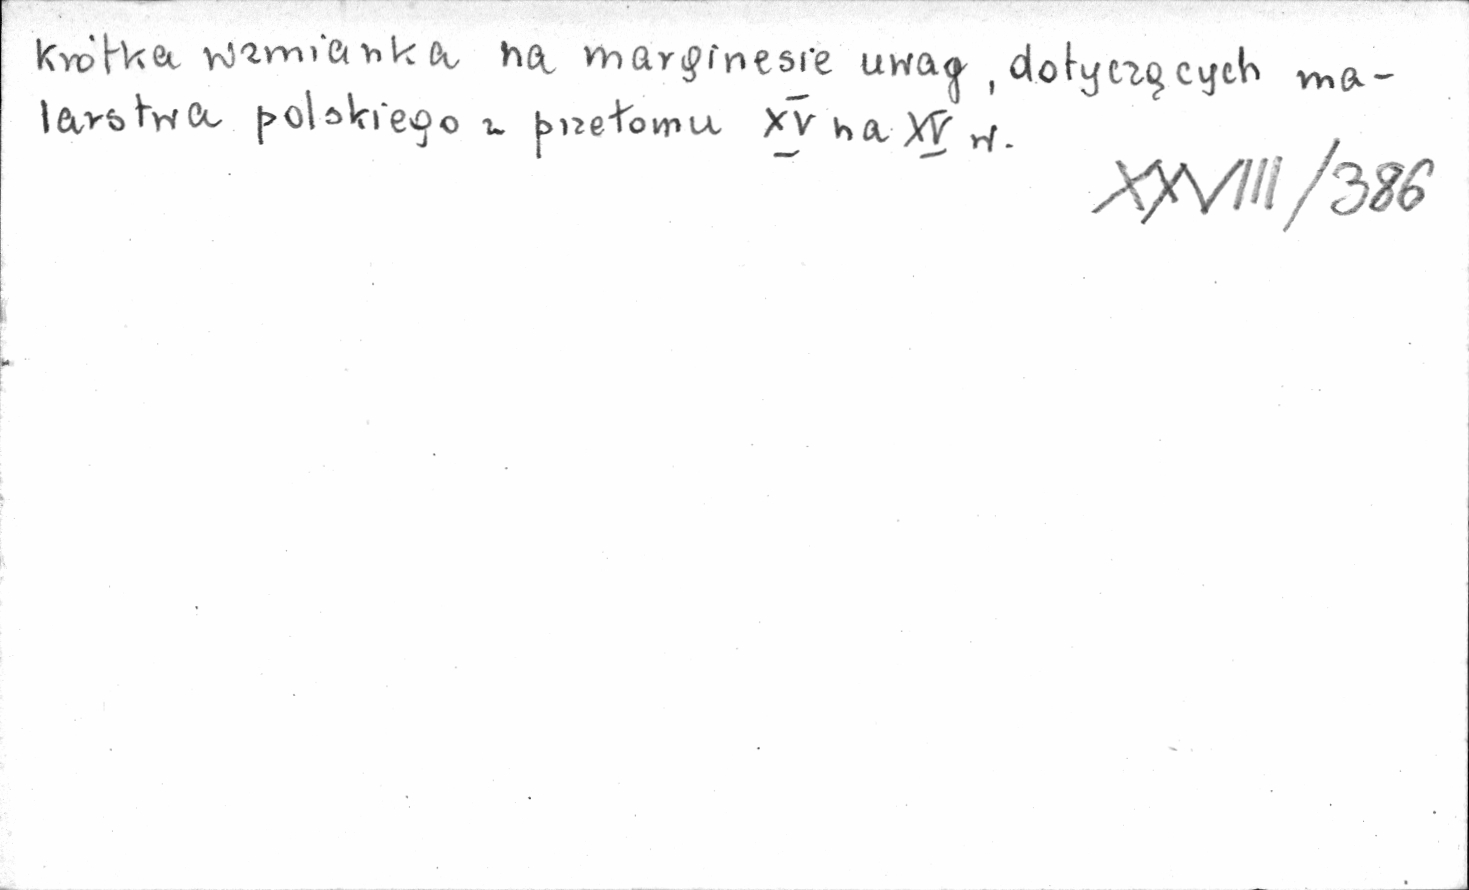 krótka wzmianka na marginesie uwag, dotyczących ma-
larstwa polskiego z przełomu XV na XV w.
XXVIII/386